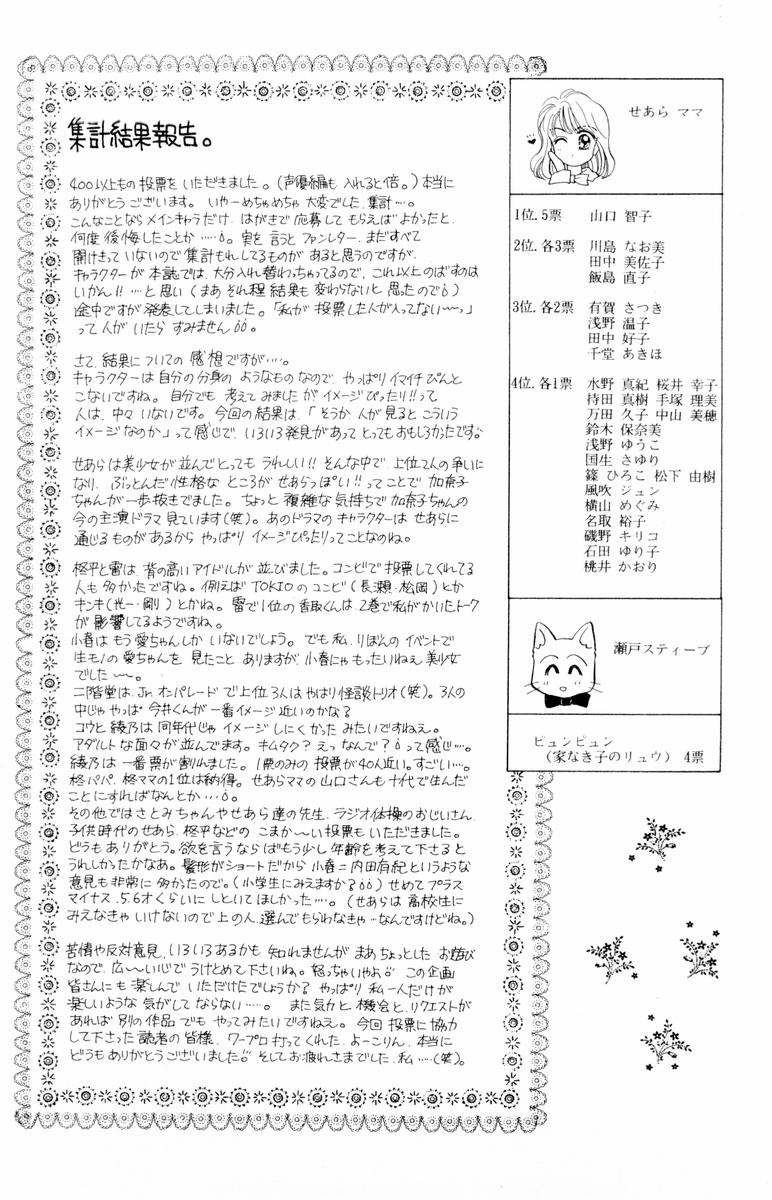 集計結果報告。
400以上もの投票をいただきました。(声優編も入れると倍。)本当に
ありがとうございます。いやーめちゃめちゃ大変でした、集計…。
こんなことならメインキャラだけ、はがきで応募してもらえばよかったと、
何度後悔したことか……。実を言うとファンレター、まだすべて
開けきっていないので集計もれしてるものがあると思うのですが、
キャラクターが本誌では、大分入れ替わっちゃってるので、これ以上のばすのは
いかん!!…と思い(まあそれ程結果も変わらないと思ったので)
途中ですが発表してしまいました。「私が投票した人が入ってない〜っ」
って人がいたらすみません。
さて、結果についての感想ですが…。
キャラクターは自分の分身のようなものなので、やっぱりイマイチぴんと
こないですね。自分でも考えてみましたがイメージぴったり!!って
人は、中々いないです。今回の結果は、「そうか人が見るとこういう
イメージなのか」って感じで、いろいろ発見があってとってもおもしろかったです。
せあらは美少女が並んでとってもうれしい!!そんな中で、上位2人の争いに
なり、ぶっとんだ性格なところがせあらっぽい!!ってことで加奈子
ちゃんが一歩抜きでました。ちょっと複雑な気持ちで加奈子ちゃんの
今の主演ドラマ見ています(笑)。あのドラマのキャラクターはせあらに
通じるものがあるからやっぱりイメージぴったりってことなのね。
柊平と雷は背の高いアイドルが並びました。コンビで投票してくれてる
人も多かったですね。例えばTOKIOのコンビ(長瀬・松岡)とか
キンキ(光一・剛)とかね。雷で1位の香取くんは、2巻で私がかいたトーク
が影響してるようですね。
小春はもう愛ちゃんしかいないでしょう。でも私、りぼんのイベントで
生モノの愛ちゃんを見たことありますが、小春にゃもったいねえ美少女
でした〜。
二階堂は、Jr.オンパレードで上位3人はやはり怪談トリオ(笑)。3人の
中じゃやっぱ今井くんが一番イメージ近いのかな?
コウと綾乃は同年代じゃイメージしにくかったみたいですねえ。
アダルトな面々が並んでます。キムタク?えっなんで?って感じ…。
綾乃は一番票が割れました。1票のみの投票が40人近い。すごい…。
柊パパ、柊ママの1位は納得。せあらママの山口さんも十代で生んだ
ことにすればなんとか…。
その他ではさとみちゃんやせあら達の先生、ラジオ体操のおじいさん、
子供時代のせあら、柊平などのこまか〜い投票もいただきました。
どうもありがとう。欲を言うならばもう少し年齢を考えて下さると
うれしかったかなあ。髪形がショートだから小春=内田有紀というような
意見も非常に多かったので。(小学生にみえますか?)せめてプラス
マイナス5.6才くらいにしといてほしかった…。(せあらは高校生に
みえなきゃいけないので上の人、選んでもらわなきゃ…なんですけどね。)
苦情や反対意見、いろいろあるかも知れませんがまあちょっとしたお遊び
なので、広〜い心でうけとめて下さいね。怒っちゃいやよ。この企画
皆さんにも楽しんでいただけたでしょうか?やっぱり私一人だけが
楽しいような気がしてならない…。また気力と機会とリクエストが
あれば別の作品でもやってみたいですねえ。今回投票に協力
して下さった読者の皆様、ワープロ打ってくれた、よーこりん、本当に
どうもありがとうございました。そしてお疲れさまでした、私…(笑)。
せあら ママ
1位.5票 山口 智子
2位.各3票 川島 なお美
田中 美佐子
飯島 直子
3位.各2票 有賀 さつき
浅野 温子
田中 好子
千堂 あきほ
4位.各1票 水野 真紀 桜井 幸子
持田 真樹 手塚 理美
万田 久子 中山 美穂
鈴木 保奈美
浅野 ゆうこ
国生 さゆり
篠 ひろこ 松下 由樹
風吹 ジュン
横山 めぐみ
名取 裕子
磯野 キリコ
石田 ゆり子
桃井 かおり
瀬戸スティーブ
ピュンピュン
(家なき子のリュウ) 4票